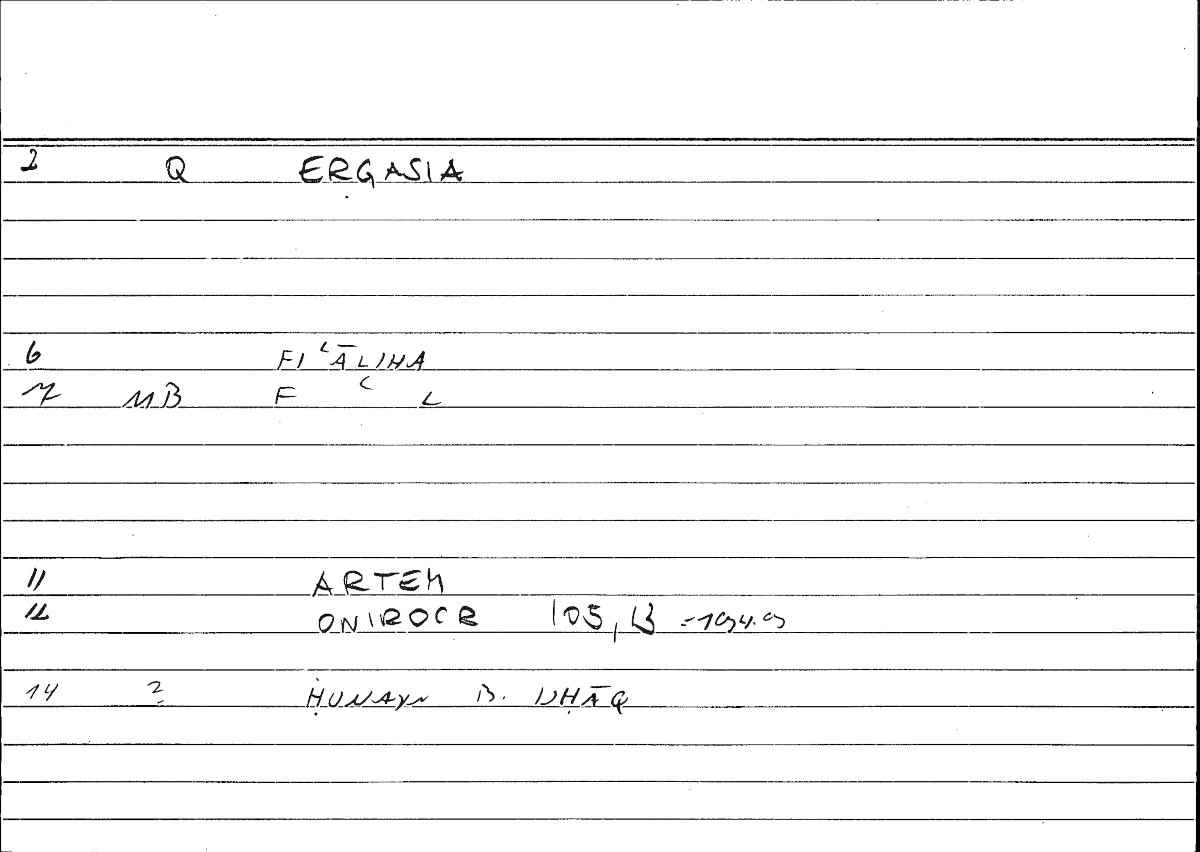 2 Q ERGASIA
6 FIʿĀLIHA
7 MB F ʿ L
11 ARTEM
12 ONIROCR 105,13 =194.9
14 ? ḤUNAYN B. ISḤĀQ